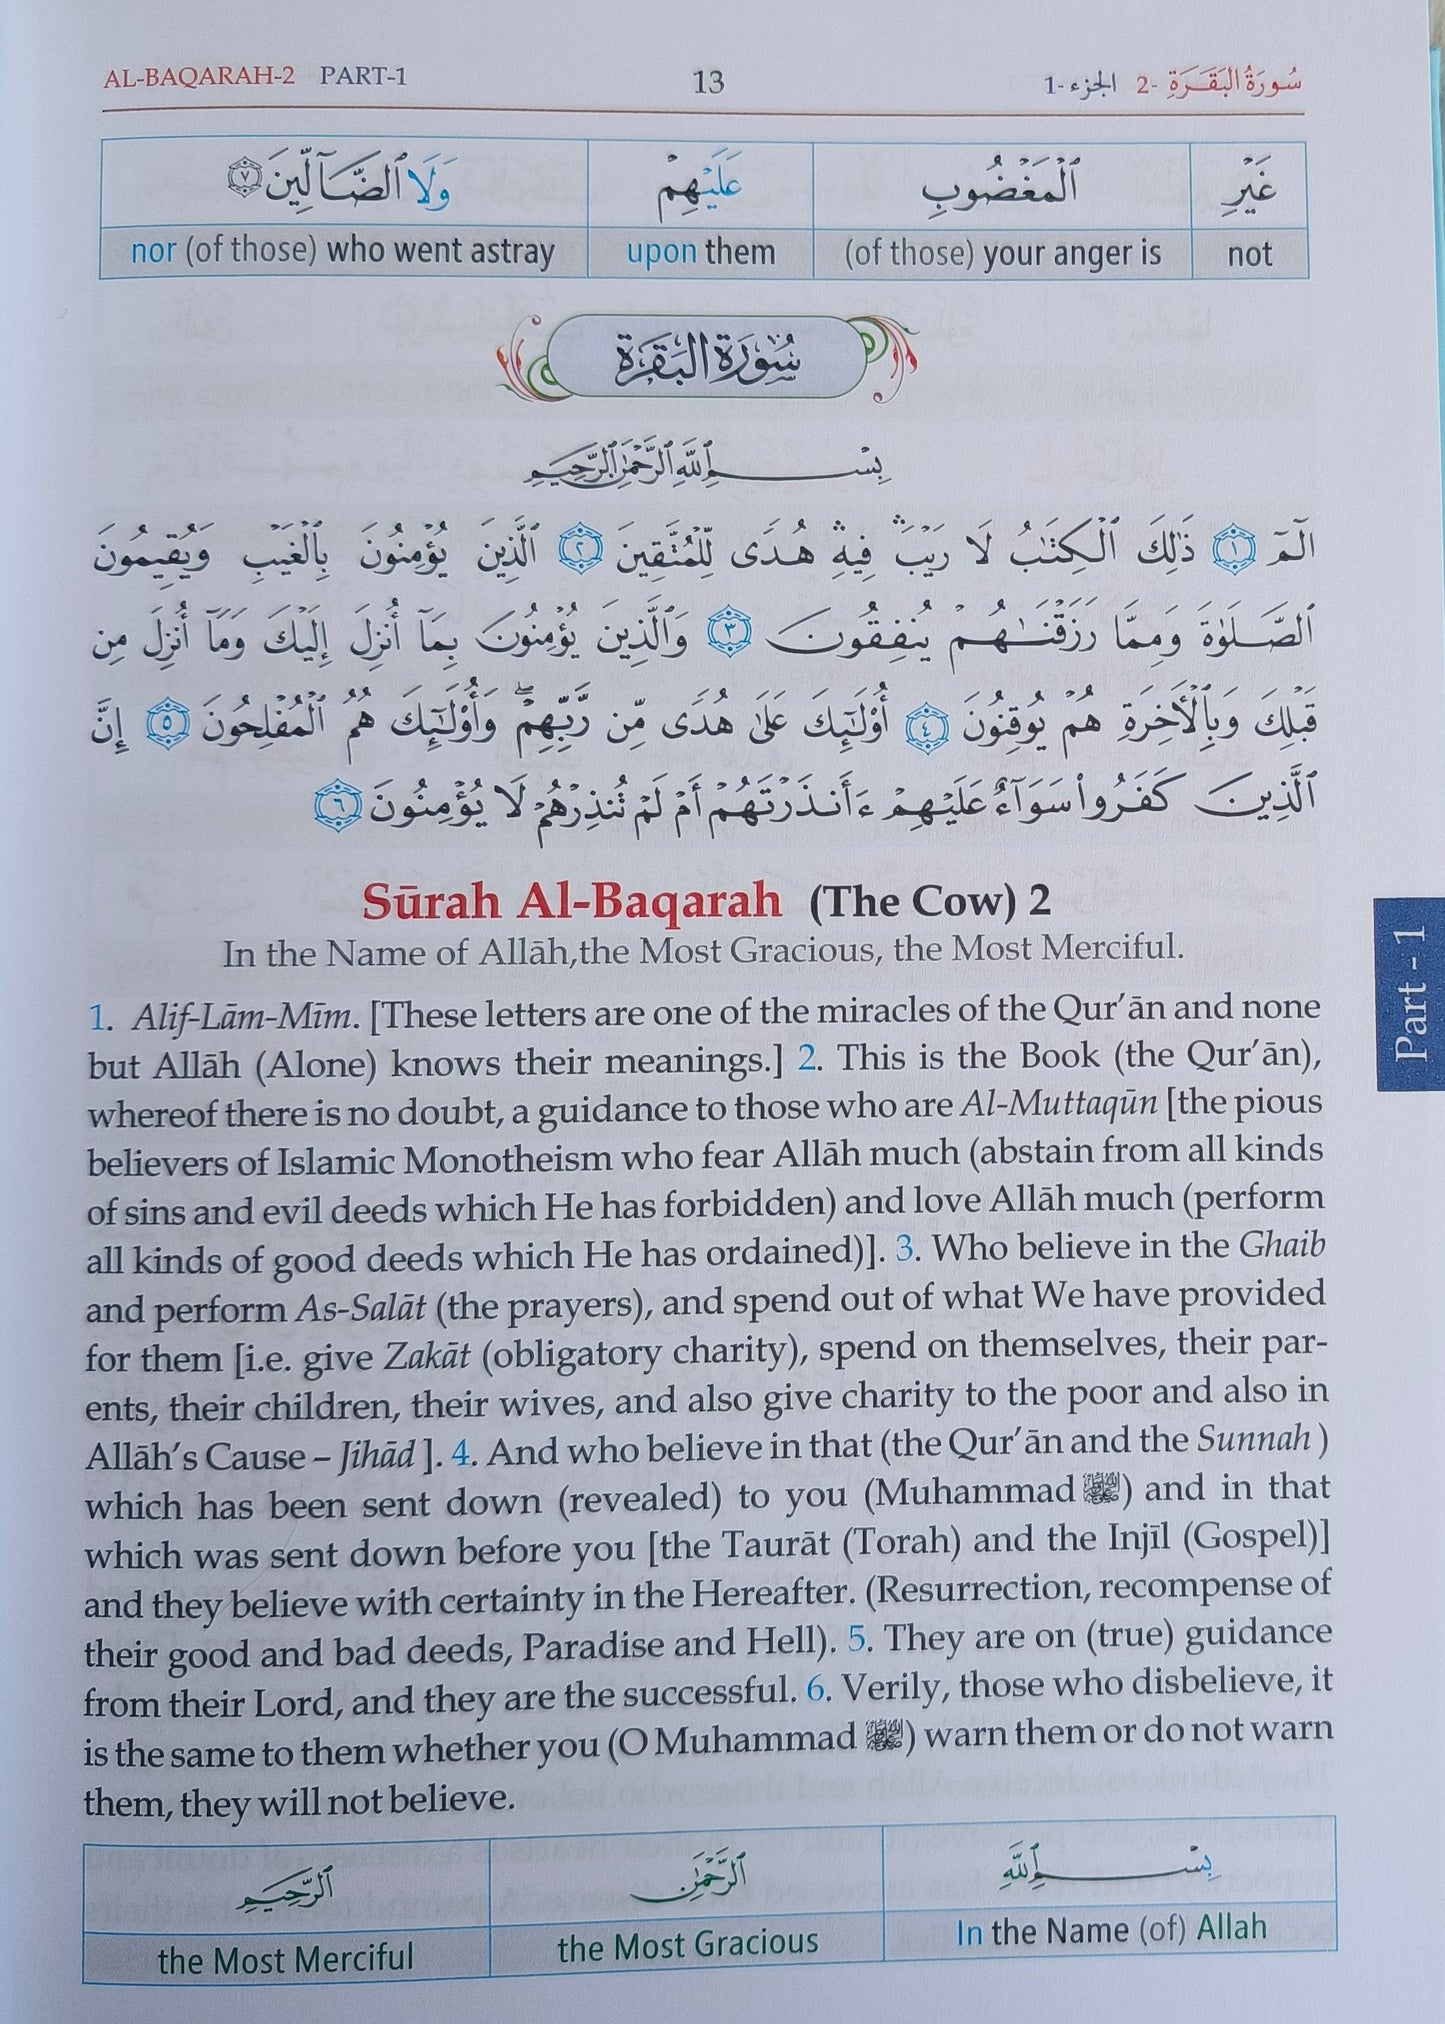 AL-BAQARAH-2 PART-1 13 الجزء -1 سُورَةُ البَقَرَةِ -2
غَيْرِ ٱلْمَغْضُوبِ عَلَيْهِمْ وَلَا ٱلضَّآلِّينَ ٧
not (of those) your anger is upon them nor (of those) who went astray
سُورَةُ البَقَرَةِ
بِسْمِ ٱللَّهِ ٱلرَّحْمَٰنِ ٱلرَّحِيمِ
الٓمٓ ١ ذَٰلِكَ ٱلْكِتَٰبُ لَا رَيْبَ ۛ فِيهِ ۛ هُدًى لِّلْمُتَّقِينَ ٢ ٱلَّذِينَ يُؤْمِنُونَ بِٱلْغَيْبِ وَيُقِيمُونَ
ٱلصَّلَوٰةَ وَمِمَّا رَزَقْنَٰهُمْ يُنفِقُونَ ٣ وَٱلَّذِينَ يُؤْمِنُونَ بِمَآ أُنزِلَ إِلَيْكَ وَمَآ أُنزِلَ مِن
قَبْلِكَ وَبِٱلْأَخِرَةِ هُمْ يُوقِنُونَ ٤ أُوْلَٰٓئِكَ عَلَىٰ هُدًى مِّن رَّبِّهِمْ ۖ وَأُوْلَٰٓئِكَ هُمُ ٱلْمُفْلِحُونَ ٥ إِنَّ
ٱلَّذِينَ كَفَرُوا۟ سَوَآءٌ عَلَيْهِمْ ءَأَنذَرْتَهُمْ أَمْ لَمْ تُنذِرْهُمْ لَا يُؤْمِنُونَ ٦
Sūrah Al-Baqarah (The Cow) 2
In the Name of Allāh,the Most Gracious, the Most Merciful.
1. Alif-Lām-Mīm. [These letters are one of the miracles of the Qur’ān and none
but Allāh (Alone) knows their meanings.] 2. This is the Book (the Qur’ān),
whereof there is no doubt, a guidance to those who are Al-Muttaqūn [the pious
believers of Islamic Monotheism who fear Allāh much (abstain from all kinds
of sins and evil deeds which He has forbidden) and love Allāh much (perform
all kinds of good deeds which He has ordained)]. 3. Who believe in the Ghaib
and perform As-Salāt (the prayers), and spend out of what We have provided
for them [i.e. give Zakāt (obligatory charity), spend on themselves, their par-
ents, their children, their wives, and also give charity to the poor and also in
Allāh’s Cause – Jihād ]. 4. And who believe in that (the Qur’ān and the Sunnah )
which has been sent down (revealed) to you (Muhammad ﷺ) and in that
which was sent down before you [the Taurāt (Torah) and the Injīl (Gospel)]
and they believe with certainty in the Hereafter. (Resurrection, recompense of
their good and bad deeds, Paradise and Hell). 5. They are on (true) guidance
from their Lord, and they are the successful. 6. Verily, those who disbelieve, it
is the same to them whether you (O Muhammad ﷺ) warn them or do not warn
them, they will not believe.
بِسْمِ ٱللَّهِ ٱلرَّحْمَٰنِ ٱلرَّحِيمِ
In the Name (of) Allah the Most Gracious the Most Merciful
Part - 1